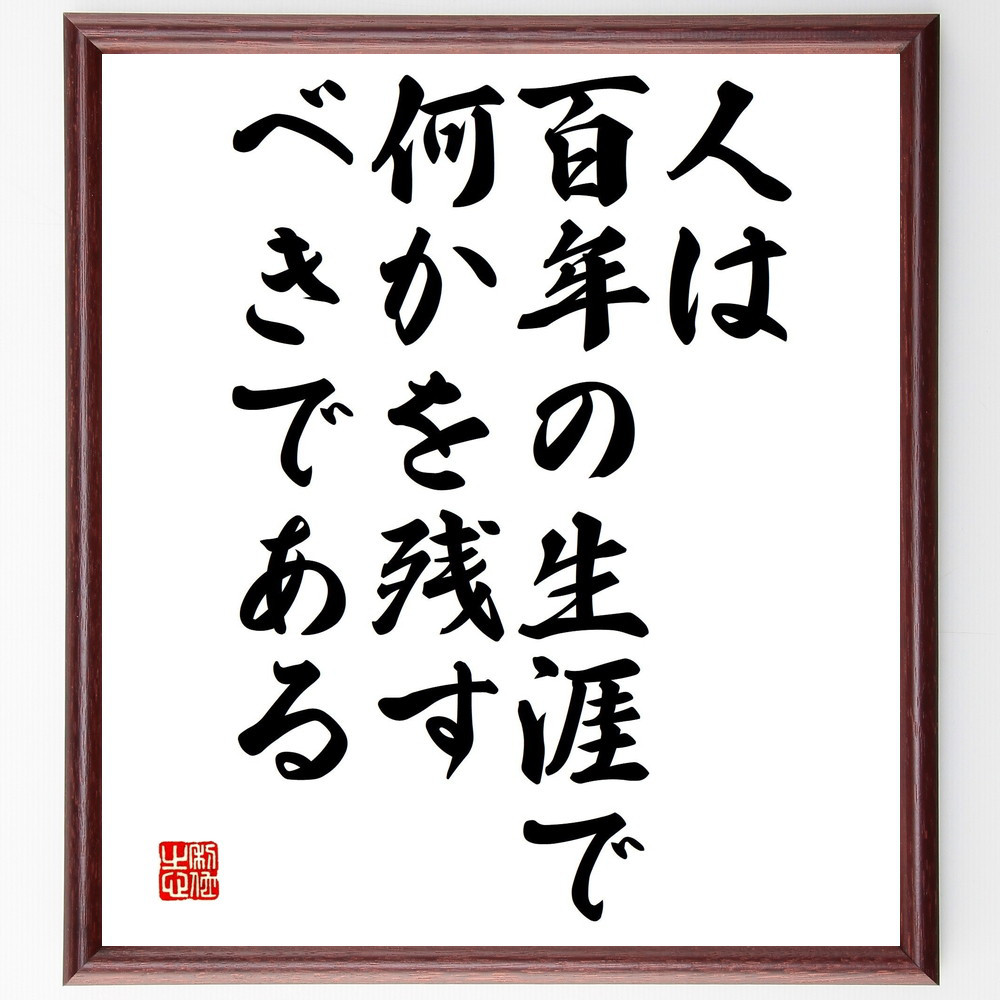 人は
百年の生涯で
何かを残す
べきである